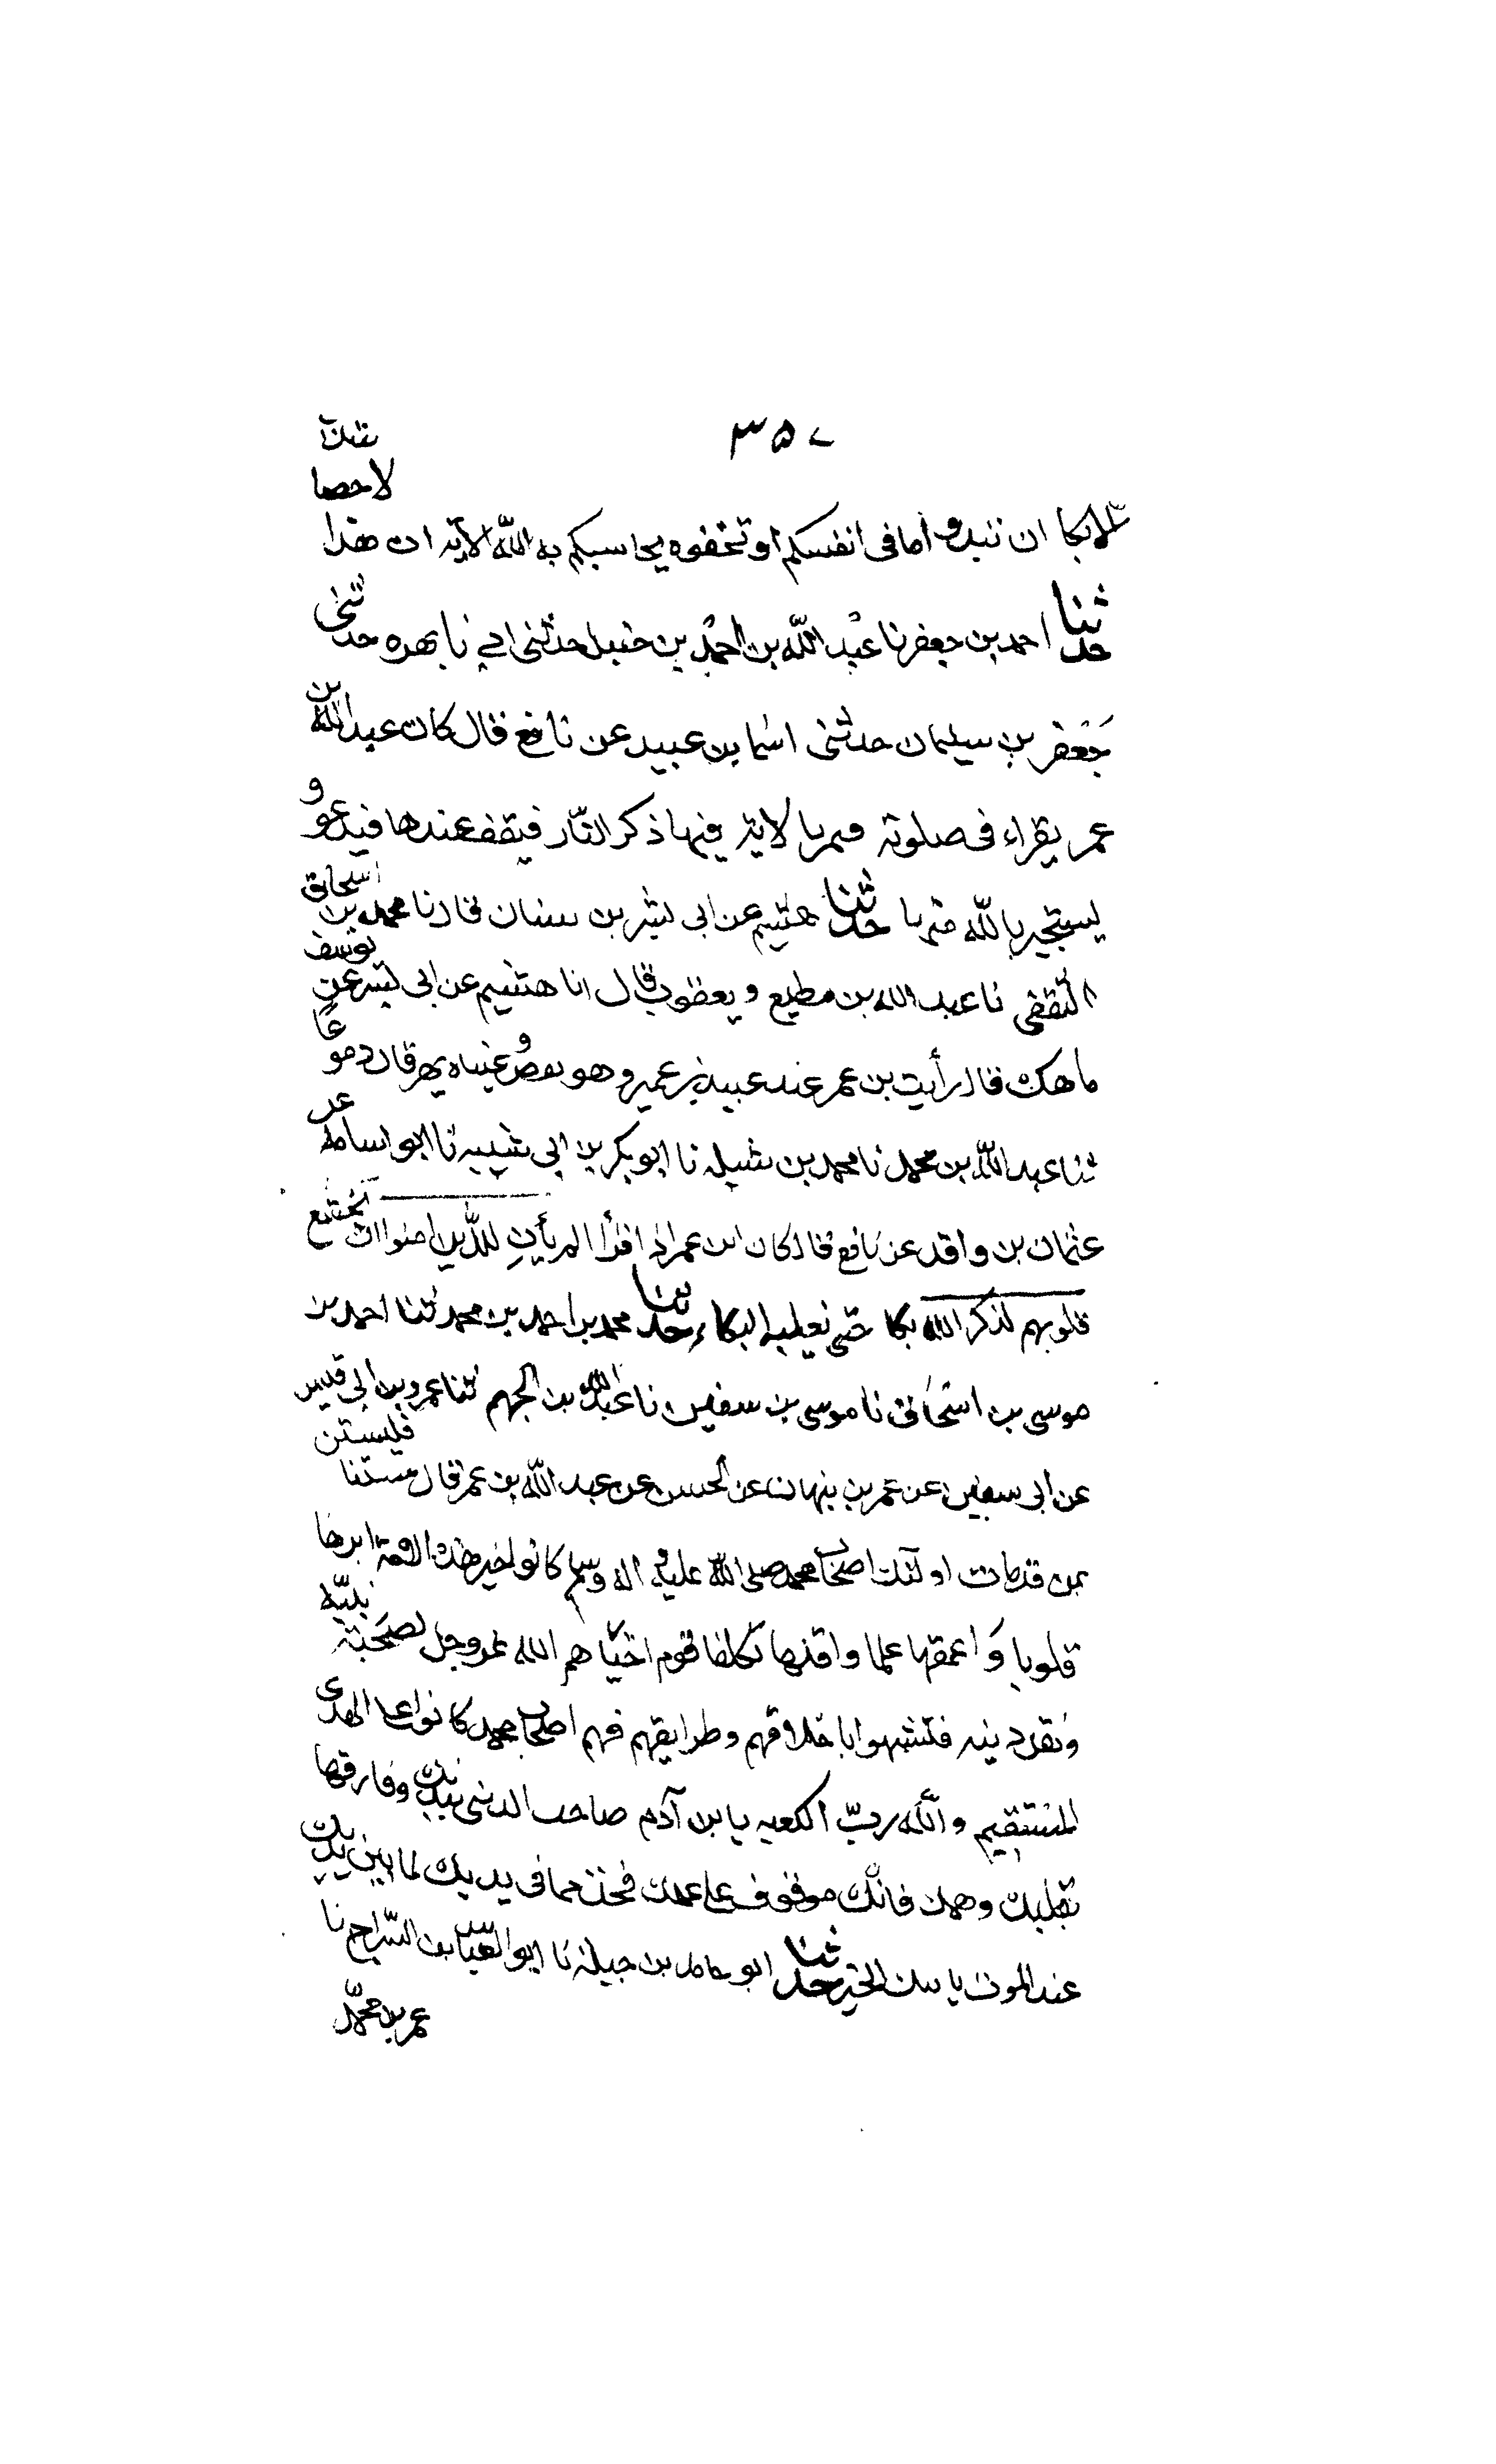 ٣٥٧
لاحصا
الابكا ان تبدوا ما فى انفسكم او تخفوه يحاسبكم به اللّه الاٰية ان هذا
حدثنا احمد بن جعفر نا عبد اللّه بن احمد بن حنبل حدثنى ابي نا بهره حدثنى
جعفر بن سليمان حدثنى اسما بن عبيد عن نافع قال كان عبد اللّه بن
عمر يقراء فى صلوته فيمر بالاية فيها ذكر النّار فيقف عندها فيدعو و
يستجير باللّه منها حدثنا هشيم عن ابى بشر بن سنان قال نا محمد بن اسحاق
الثقفى نا عبد الله بن مطيع و يعقوب قال انا هشيم عن ابى بشر عن يوسف
ماهك قال رأيت بن عمر عند عبيد بن عمير وهو يقص و عيناه يهرقان دموعا
ثنا عبد اللّه بن محمد نا محمد بن شبله نا ابو بكر بن ابى شيبه نا ابو اساط عن
عثمان بن واقد عن نافع قال كان ابن عمر اذا قرأ الم يأنِ للذين امنوا ان تخشع
قلوبهم لذكر الله بكا حتى يغلبه البكاء حدثنا محمد بن احمد بن محمد ثنا احمد بن
موسى بن اسحاق نا موسى بن سفين نا عبد اللّه بن الجهم ثنا عمرو بن ابى قيس
عن ابى سفين عن عمر بن نبهان عن الحسن عن عبد اللّه بن عمر قال مستنا فليستن
بمن قد مات اولئك اصحاب محمد صلى اللّه عليه و اله وسلم كانوا خير هذه الامة ابرها
قلوبا وَ اعمقها علما و اقلها تكلفا قوم اختاهم الله عزوجل لصحبة نبيّه
ونقل دينه فتشبهوا باخلاقهم وطرايقهم فهم اصحاب محمد كانوا على الهدى
المستقيم واللّه ربّ الكعبه يا بن آدم صاحب الدنى ببدنك وفارقها
بقلبك وهمك فانّك موقوف على عملك فخذ مما فى يديك لما بين يديك
عند الموت ياتيك الخير حدثنا ابو حامد بن جبلة نا ابو العباس بن السّراج نا
عمر بن محمّد